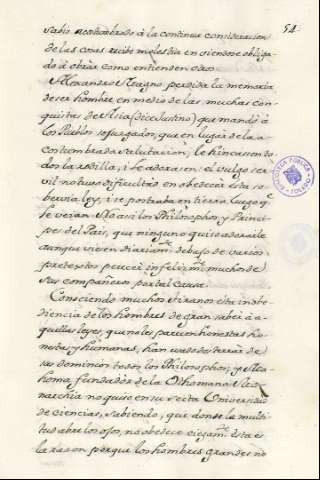 54
sabio acostumbrado à la continua consideracion
de las cosas recibe molestia en viendose obliga
do à obrar como entienden otro.
Alexandro Magno perdida la memoria
de ser hombre en medio de las muchas con
quistas de Asia (dice Justino) que mandò à
los Pueblos sojuzgados, que en lugar de la a
costumbrada salutacion, le hincassen to
dos la rodilla, i le adorasen. el vulgo ser
vil no tuvo dificultad en obedecer esta so
bervia ley, i se postraba en tierra luego q.e
le veian. Mas assi los Philosophos, y Princi
pes del Pais, que ninguno quiso adorarle
aunque viesen diariam.te debajo de varios
pretextos perecer infelizm.te muchos de
sus compañeros por tal causa.
Conociendo muchos tiranos esta inobe
diencia de los hombres de gran saber à a
quellas leyes, que no les parecen honestas ho
nestas, y humanas, han desterrar de
sus dominios todos los Philosophos, y Ma
homa, fundador de la Othomana Mo
narchia no quiso en su secta Universidad
de Ciencias, sabiendo, que donde la multi
tud abre los ojos, no obedece ciegam.te esta es
la razon porque los hombres grandes no
BIBLIOTECA PÚBLICA
TOLEDO